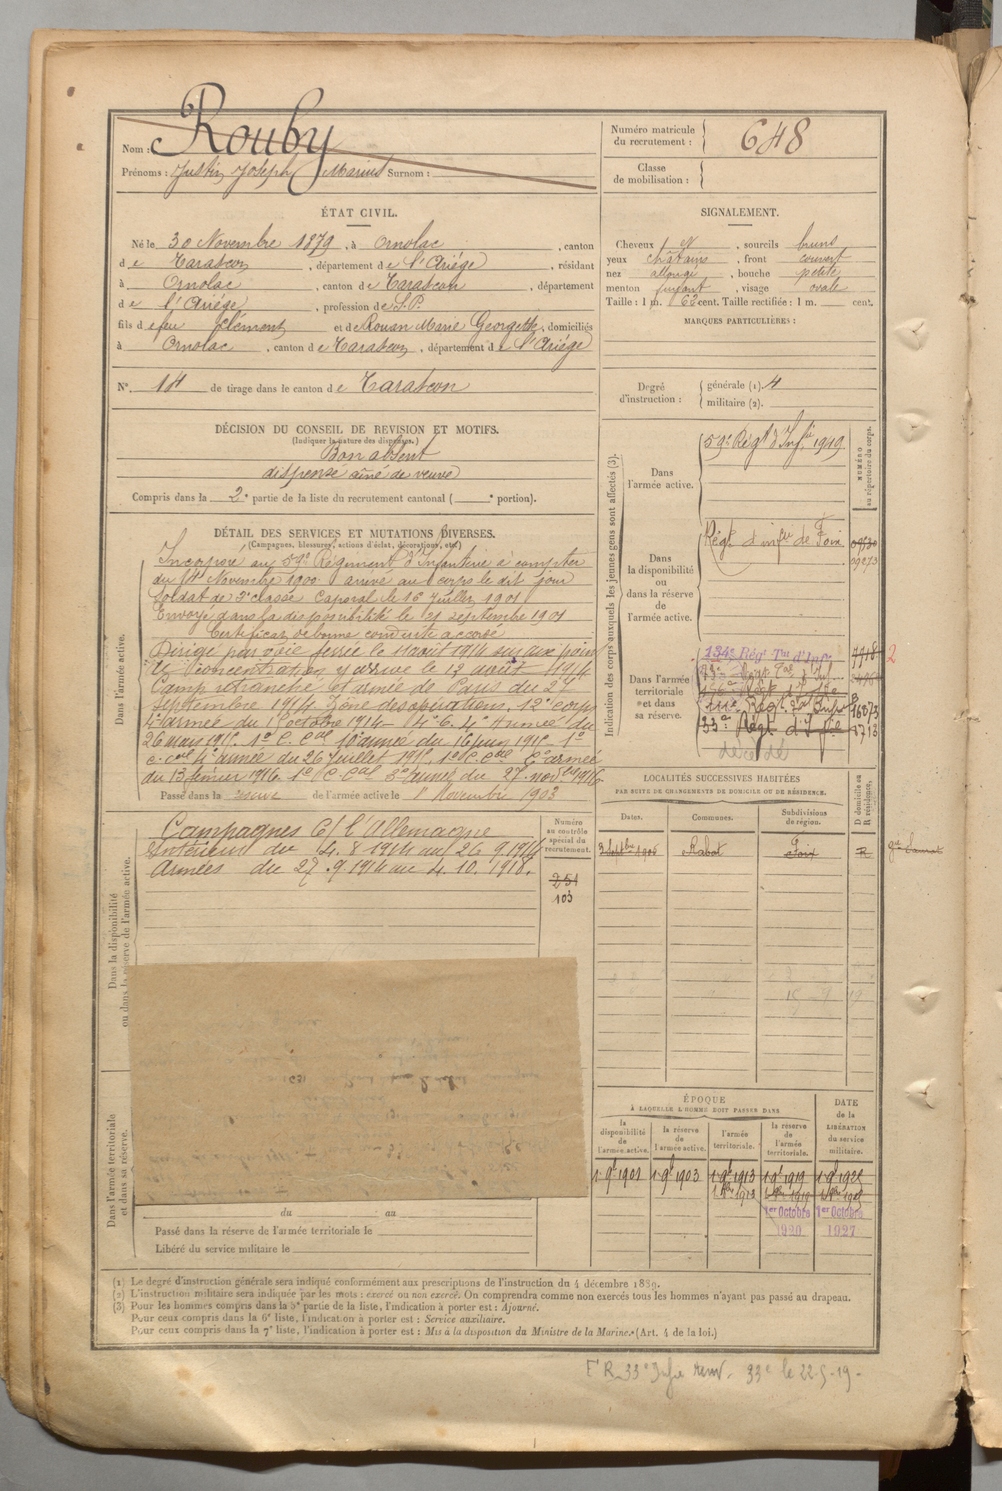 Nom : Rouby
Prénoms : Justin Joseph Marius Surnom :
Numéro matricule du recrutement : 648
Classe de mobilisation :
ÉTAT CIVIL.
Né le 30 Novembre 1879, à Ornolac, canton
de Tarascon, département de l'Ariége, résidant
à Ornolac, canton de Tarascon, département
de l'Ariége, profession de S.P.
fils de feu Clément et de Rouan Marie Georgette, domiciliés
à Ornolac, canton de Tarascon, département de l'Ariége
N° 14 de tirage dans le canton de Tarascon
SIGNALEMENT.
Cheveux N, sourcils bruns
yeux chatains, front couvert
nez allongé, bouche petite
menton, visage ovale
Taille : 1 m. 62 cent. Taille rectifiée : 1 m. cent.
MARQUES PARTICULIÈRES :
Degré d'instruction : générale (1). 4
militaire (2).
DÉCISION DU CONSEIL DE REVISION ET MOTIFS.
(Indiquer la nature des dispenses.)
Bon absent
dispensé ainé de veuve
Compris dans la 2e partie de la liste du recrutement cantonal ( e portion).
DÉTAIL DES SERVICES ET MUTATIONS DIVERSES.
(Campagnes, blessures, actions d'éclat, décorations, etc.)
Dans l'armée active.
Incorporé au 59e Régiment d'Infanterie à compter
du 14 Novembre 1900 arrivé au corps le dit jour
Soldat de 2e classe Caporal le 16 Juillet 1901
Envoyé dans la disponibilité le 21 septembre 1901
Certificat de bonne conduite accordé
Dirigé par voie ferrée le 11 août 1914 sur un point
de concentration y arrive le 12 août 1914
Camp retranché et armée de Paris du 27
septembre 1914 Zone des opérations. 12e corps
4e armée du 1er octobre 1914
26 mars 1915. 1er C. Cal 10e armée du 16 juin 1915 1er
C. Cal 4e armée du 26 juillet 1915. 1er C. Cal 6e armée
du 13 février 1916 1er C. Cal 3e armée du 27 novbre 1916
Passé dans la réserve de l'armée active le 1er Novembre 1903
Indication des corps auxquels les jeunes gens sont affectés (3).
NUMÉRO au répertoire du corps.
Dans l'armée active.
59e Régt d'Infie 1919
Dans la disponibilité ou dans la réserve de l'armée active.
Régt d'infie de Foix
Dans l'armée territoriale et dans sa réserve.
134e Régt Tal d'Infie
33e Régt d'Infie
décédé
2
Dans la disponibilité ou dans la réserve de l'armée active.
Campagnes C/ l'Allemagne
Intérieur du 4.8.1914 au 26.9.1914
Armées du 27.9.1914 au 4.10.1918.
Numéro au contrôle spécial du recrutement.
251
103
LOCALITÉS SUCCESSIVES HABITÉES
PAR SUITE DE CHANGEMENTS DE DOMICILE OU DE RÉSIDENCE.
Dates. Communes. Subdivisions de région. D domicile ou R résidence.
Rabat Foix R
Dans l'armée territoriale et dans sa réserve.
du au
Passé dans la réserve de l'armée territoriale le
Libéré du service militaire le
ÉPOQUE
À LAQUELLE L'HOMME DOIT PASSER DANS
la disponibilité de l'armée active. la réserve de l'armée active. l'armée territoriale. la réserve de l'armée territoriale. DATE de la LIBÉRATION du service militaire.
1 9e 1901 1 9e 1903 1 9e 1913 1 9e 1919
1er Octobre 1920 1er Octobre 1927
(1) Le degré d'instruction générale sera indiqué conformément aux prescriptions de l'instruction du 4 décembre 1889.
(2) L'instruction militaire sera indiquée par les mots : exercé ou non exercé. On comprendra comme non exercés tous les hommes n'ayant pas passé au drapeau.
(3) Pour les hommes compris dans la 5e partie de la liste, l'indication à porter est : Ajourné.
Pour ceux compris dans la 6e liste, l'indication à porter est : Service auxiliaire.
Pour ceux compris dans la 7e liste, l'indication à porter est : Mis à la disposition du Ministre de la Marine. (Art. 4 de la loi.)
33e le 22-5-19-